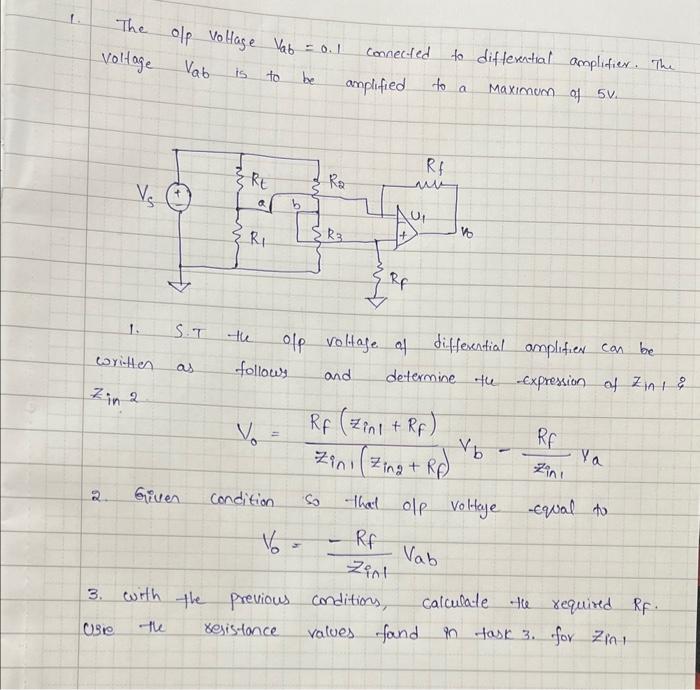 1. The o/p voltage Vab = 0.1 connected to differential amplifier. The
voltage Vab is to be amplified to a Maximum of 5V.
Rf
Rt R2
Vs + a b U1
R1 R3 + Vo
Rf
1. S.T the o/p voltage of differential amplifier can be
written as follows and determine the expression of Zin1 &
Zin2
Vo = Rf (Zin1 + Rf) / Zin1 (Zin2 + Rf) Vb - Rf / Zin1 Va
2. Given condition so that o/p voltage equal to
Vo = - Rf / Zin1 Vab
3. with the previous conditions, calculate the required RF.
Use the resistance values fand in task 3. for Zin1